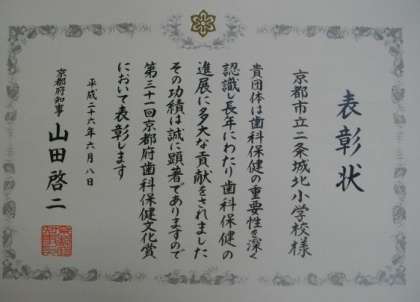 表彰状
京都市立二条城北小学校様
貴団体は歯科保健の重要性を深く
認識し長年にわたり歯科保健の
進展に多大な貢献をされました
その功績は誠に顕著でありますので
第三十一回京都府歯科保健文化賞
において表彰します
平成二十六年六月八日
京都府知事 山田啓二